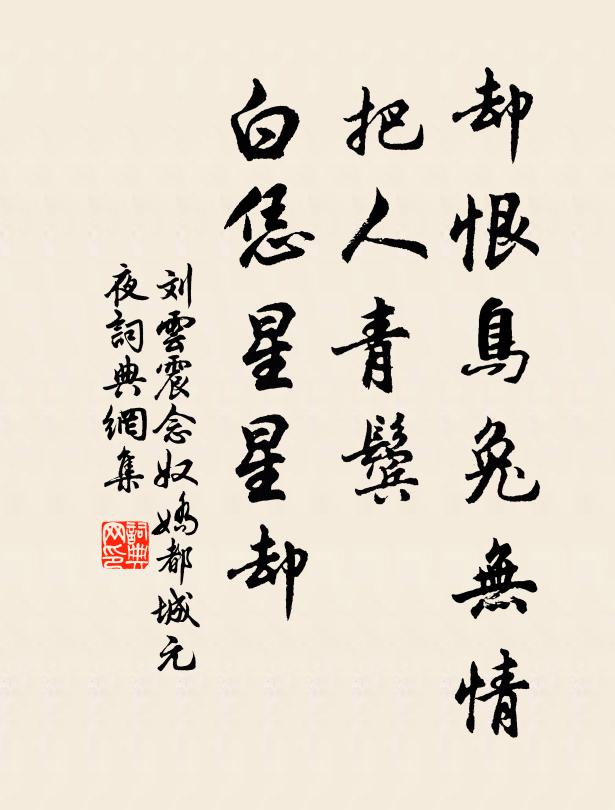 却恨烏兔無情
把人青鬢
白恁星星却
刘雲震念奴嬌都城元
夜詞典網集
詞典
网印